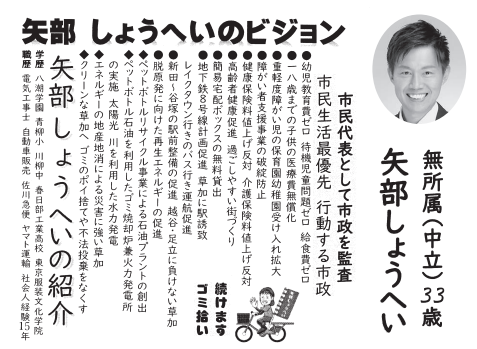 矢部 しょうへいのビジョン
無所属(中立)33歳
矢部しょうへい
市民代表として市政を監査
市民生活最優先 行動する市政
●幼児教育費ゼロ 待機児童問題ゼロ 給食費ゼロ
●一八歳までの子供の医療費無償化
●重軽度障がい児の保育園幼稚園受け入れ拡大
●障がい者支援事業の破綻防止
●健康保険料値上げ反対 介護保険料値上げ反対
●高齢者健康促進 過ごしやすい街づくり
●簡易宅配ボックスの無料貸出
●地下鉄8号線計画促進 草加に駅誘致
レイクタウン行きのバス行き運航促進
◆新田〜谷塚の駅前整備の促進 越谷・足立に負けない草加
◆脱原発に向けた再生エネルギーの促進
◆ペットボトルリサイクル事業による石油プラントの創出
◆ペットボトル石油を利用したゴミ焼却炉兼火力発電所
の実施 太陽光 川を利用した水力発電
◆エネルギーの地産地消による災害に強い草加
◆クリーンな草加へ ゴミのポイ捨てや不法投棄をなくす
続けます
ゴミ拾い
矢部 しょうへいの紹介
学歴 八潮学園 青柳小 川柳中 春日部工業高校 東京服装文化学院
職歴 電気工事士 自動車販売 佐川急便 ヤマト運輸 社会人経験15年